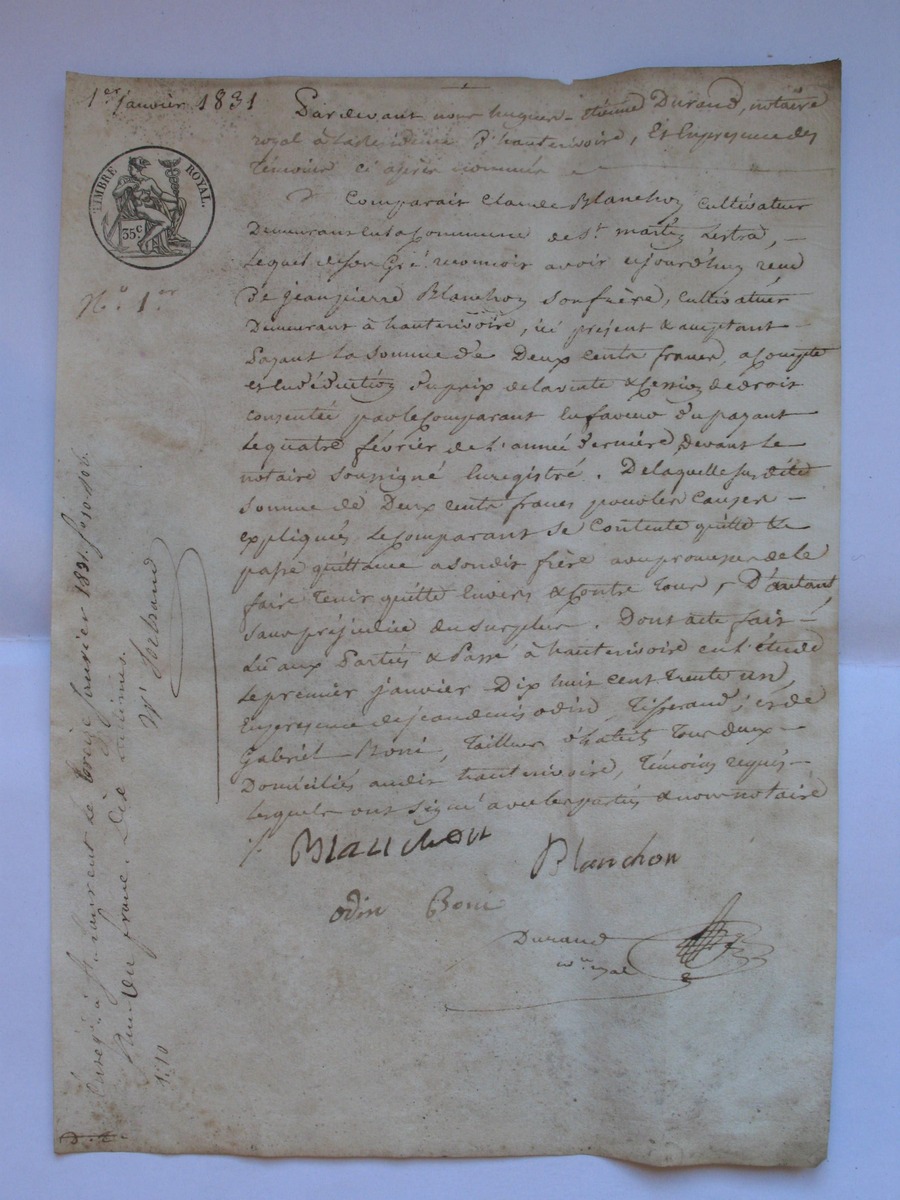 1er Janvier 1831
Pardevant nous hugues-étienne Durand, notaire
royal à la résidence d'hauterivoire, Et En presence des
Témoins ci après nommés
TIMBRE ROYAL.
35c
No 1er
Comparait Claude Blanchon cultivateur
Demeurant en la Commune de St martin Lestra,
Lequel de son Gré reconnoit avoir aujourd'huy recu
De jean pierre Blanchon son frère, cultivateur
Demeurant à hauterivoire, ici présent & acceptant
Payant la somme de Deux cents francs, acompte
et En déduction du prix de la vente & Cession de droit
Consentée par le Comparant En faveur du payant
Le quatre février de l'année dernière, devant le
notaire soussigné Enregistré. De laquelle susdite
somme de Deux cents francs pour les causes
expliqués, le Comparant se Contente quitte le
passe quittance a son dit frère avec promesse de le
faire Tenir quitte Envers & Contre Tous, D'autant
sans préjudice du surplus. Dont acte fait
Lu aux Parties & Passé à hauterivoire en l'étude
Le premier janvier Dix huit cent trente un,
En presence de jean denis odin, Tisserand, et de
Gabriel Boni, Tailleur d'habits Tous deux
Domiciliés audit hauterivoire, Témoins requis
lesquels ont signé avec les parties & nous notaire
Blanchon
Blanchon
odin Boni
Durand
nre royal
Enregé à St Laurent le treize Janvier 1831. fo 10
Reçu un franc dix centimes.
1.10